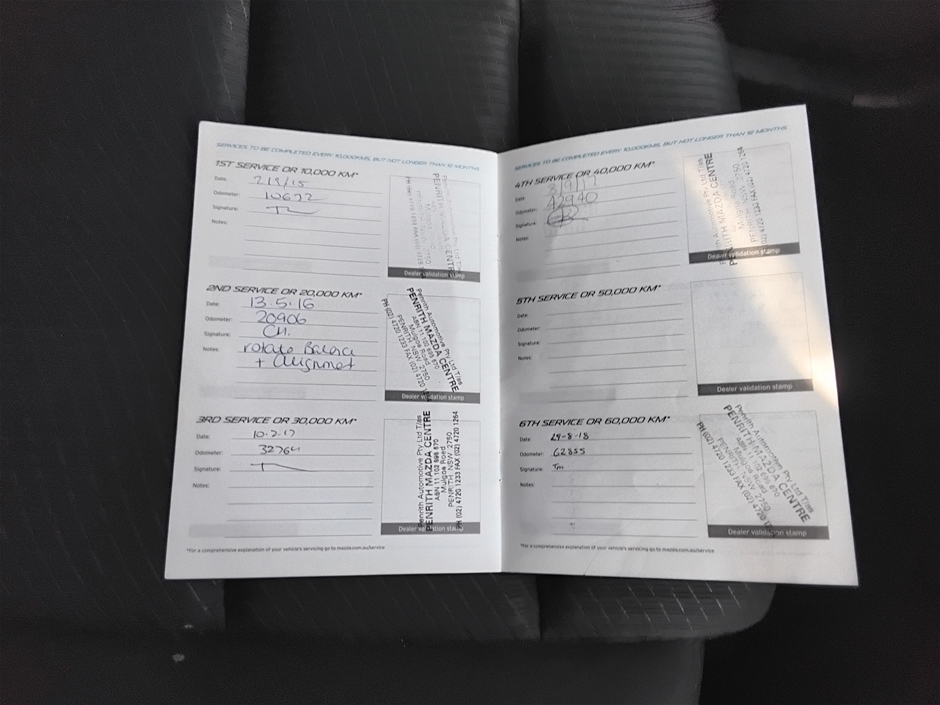 SERVICES TO BE COMPLETED EVERY 10,000KMS, BUT NOT LONGER THAN 12 MONTHS
1ST SERVICE OR 10,000 KM*
Date:
Odometer: 10672
Signature:
Notes:
Dealer validation stamp
2ND SERVICE OR 20,000 KM*
Date: 13.5.16
Odometer: 20906
Signature: CH.
Notes: rotate Balance
+ Alignment
Penrith Automotive Pty Ltd T/as
PENRITH MAZDA CENTRE
Dealer validation stamp
3RD SERVICE OR 30,000 KM*
Date: 10-2-17
Odometer: 32764
Signature:
Notes:
Penrith Automotive Pty Ltd T/as
PENRITH MAZDA CENTRE
ABN 11 102 698 870
Mulgoa Road
PENRITH NSW 2750
PH (02) 4720 1233 FAX (02) 4720 1264
Dealer validation stamp
*For a comprehensive explanation of your vehicle's servicing go to mazda.com.au/service
SERVICES TO BE COMPLETED EVERY 10,000KMS, BUT NOT LONGER THAN 12 MONTHS
4TH SERVICE OR 40,000 KM*
Date: 8/9/17
Odometer: 42940
Signature:
Notes:
PENRITH MAZDA CENTRE
Dealer validation stamp
5TH SERVICE OR 50,000 KM*
Date:
Odometer:
Signature:
Notes:
Dealer validation stamp
6TH SERVICE OR 60,000 KM*
Date: 29-8-18
Odometer: 62855
Signature: Tm
Notes:
Penrith Automotive Pty Ltd T/as
PENRITH MAZDA CENTRE
ABN 11 102 698 870
Mulgoa Road
PENRITH NSW 2750
PH (02) 4720 1233 FAX (02) 4720
Dealer validation stamp
*For a comprehensive explanation of your vehicle's servicing go to mazda.com.au/service